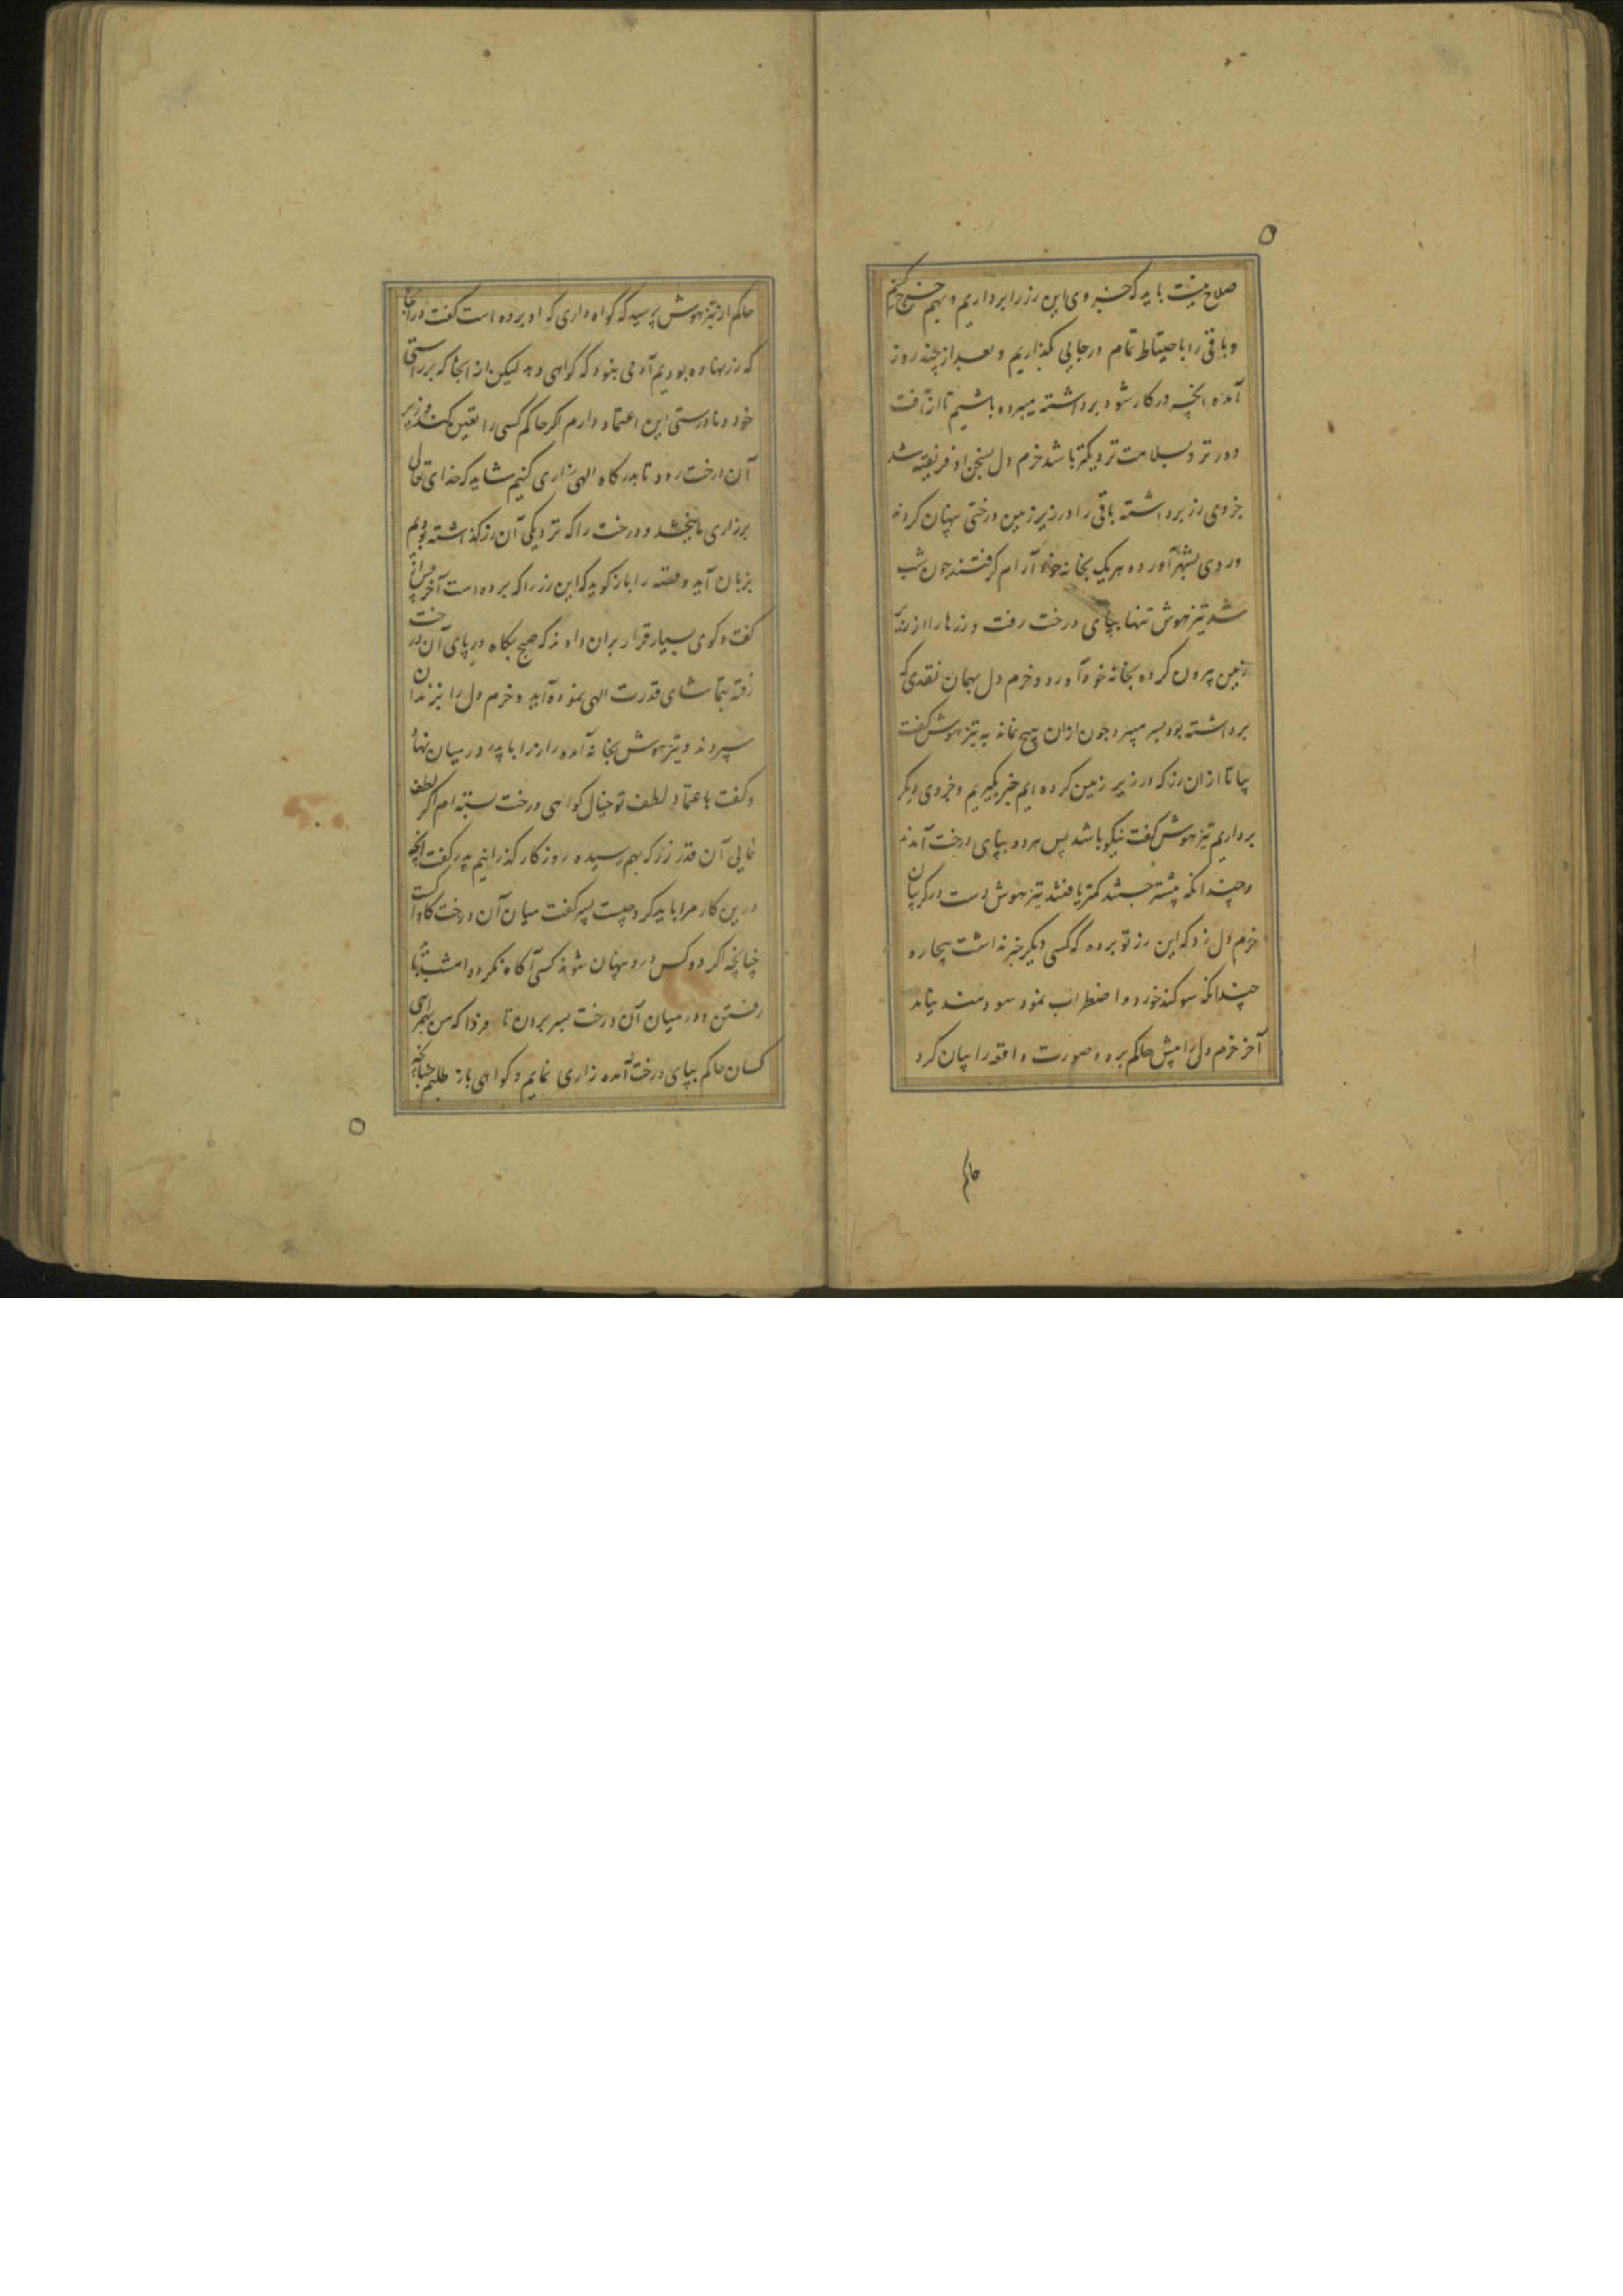 صلاح نیست باید که جزوی این زر را برداریم و بهم خرج کنیم
و باقی را باحتیاط تمام در جایی بگذاریم و بعد از چند روز
آمده انچه در کار شود برداشته میبرده باشیم تا از آفت
دورتر و بسلامت نزدیکتر باشد خرم دل بسخن او فریفته شد
جزوی زر برداشته باقی را در زیر زمین درختی پنهان کردند
و روی بشهر آورده هر یک بخانه خود آرام گرفتند چون شب
شد تیزهوش تنها بپای درخت رفت و زرها را از زیر
زمین بیرون کرده بخانه خود آورد و خرم دل بهمان نقدی که
برداشته بود بسر میبرد چون ازان هیچ نماند به تیزهوش گفت
بیا تا ازان زر که در زیر زمین کرده ایم خبر بگیریم و جزوی دیگر
برداریم تیزهوش گفت نیکو باشد پس هر دو بپای درخت آمدند
و چندانکه بیشتر جستند کمتر یافتند تیزهوش دست در گریبان
خرم دل زد که این زر تو برده که کسی دیگر خبر نداشت بیچاره
چندانکه سوگند خورد و اضطراب نمود سودمند نیامد
آخر خرم دل را پیش حاکم برد و صورت واقعه را بیان کرد
حاکم
حاکم از تیزهوش پرسید که گواه داری که او برده است گفت در آنجا
که زر نهاده بودیم آدمی نبود که گواهی دهد لیکن از انجا که بر راستی
خود و نادرستی این اعتماد دارم اگر حاکم کسی را تعین کند و زیر
آن درخت رود تا بدرگاه الهی زاری کنیم شاید که خدای تعالی
بر زاری ما بخشد و درخت را که نزدیکی آن زر گذاشته بودیم
بزبان آید و قصه را باز گوید که این زر را که برده است آخر پس از
گفت و گوی بسیار قرار بران دادند که صبح بگاه در پای آن درخت
رفته بتماشای قدرت الهی نموده آید و خرم دل را بزندان
سپردند و تیزهوش بخانه آمده راز را با پدر در میان نهاد
و گفت باعتماد لطف تو خیال گواهی درخت بسته ام اگر لطف
نمایی آن قدر زر که بهم رسیده روزگار گذرانیم پدر گفت آنچه
درین کار مرا باید کرد چیست پسر گفت میان آن درخت کاواک است
چنانچه اگر دو کس درو پنهان شوند کسی آگاه نگردد امشب باید
رفتن و در میان آن درخت بسر بردن تا فردا که من بهمراهی
کسان حاکم بپای درخت آمده زاری نمایم و گواهی باز طلبم چنانچه